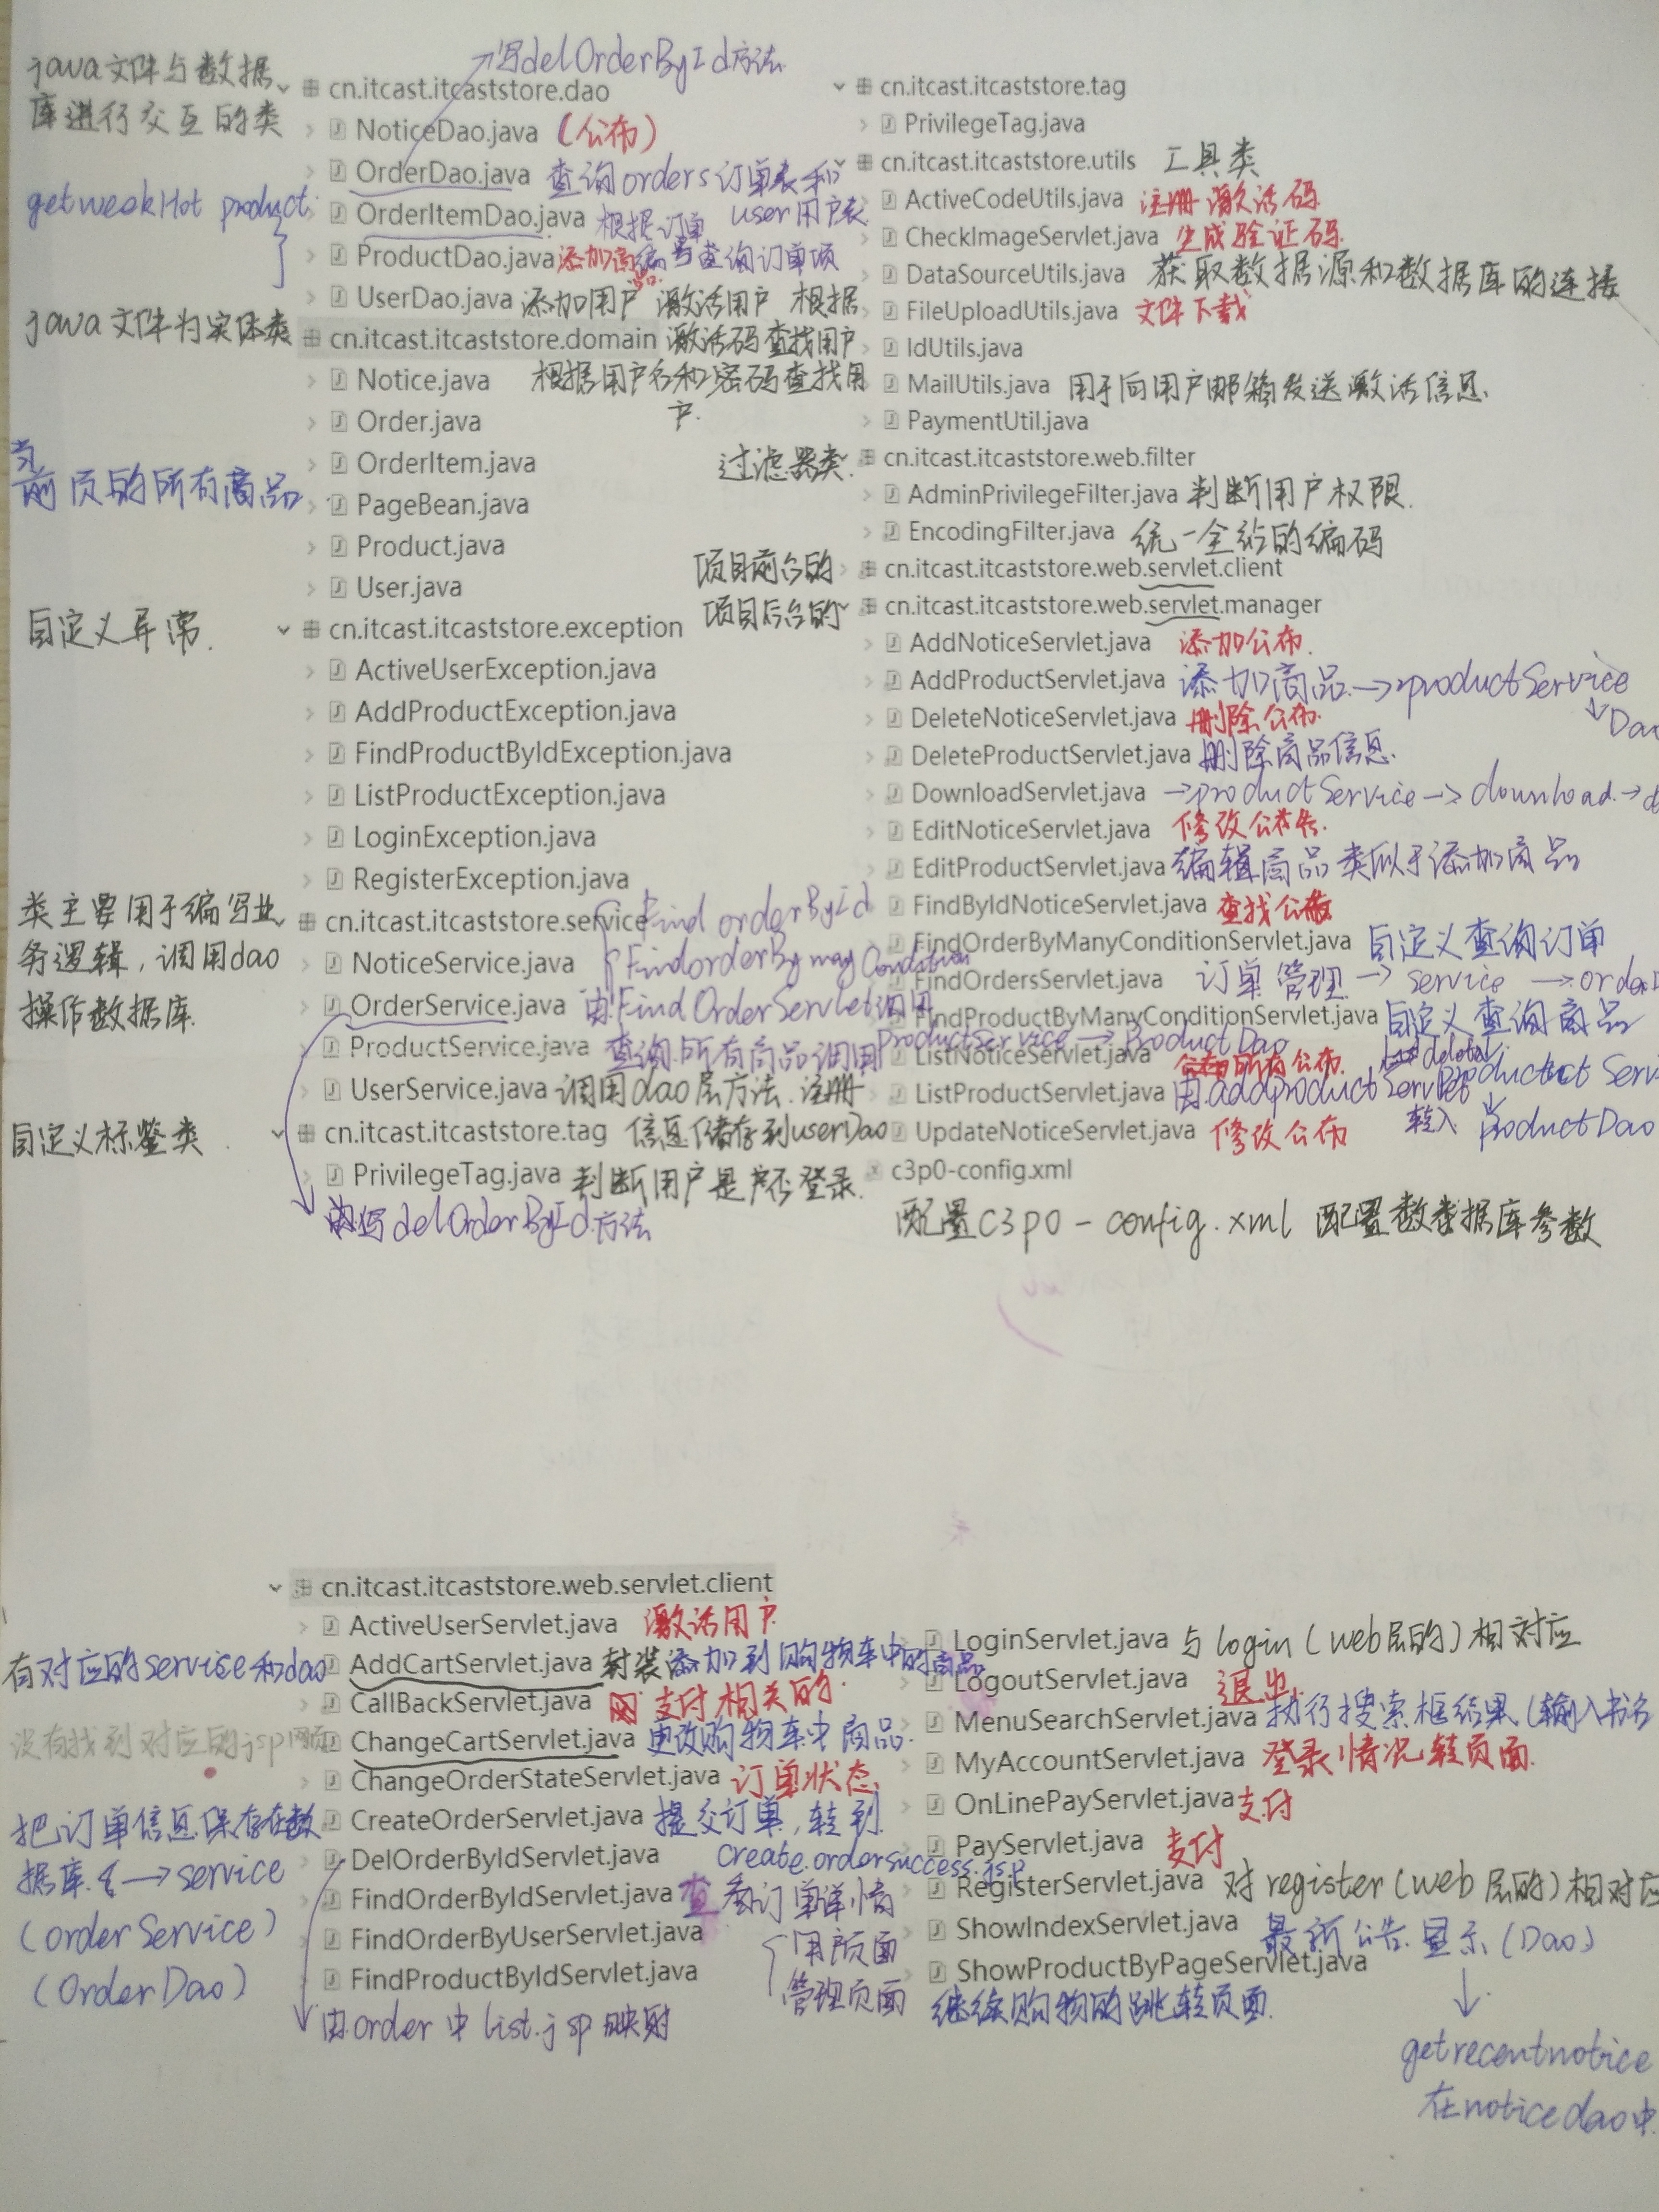 java文件与数据
库进行交互的类
写delOrderById方法
cn.itcast.itcaststore.dao
NoticeDao.java (公布)
OrderDao.java 查询orders订单表和
user用户表
getweekHot product
OrderItemDao.java 根据订单
编号查询订单项
ProductDao.java 添加商品
UserDao.java 添加用户 激活用户 根据
激活码查找用户
根据用户名和密码查找用
户.
java文件为实体类
cn.itcast.itcaststore.domain
Notice.java
Order.java
OrderItem.java
当
前页的所有商品
PageBean.java
Product.java
User.java
自定义异常.
cn.itcast.itcaststore.exception
ActiveUserException.java
AddProductException.java
FindProductByIdException.java
ListProductException.java
LoginException.java
RegisterException.java
类主要用于编写业
务逻辑，调用dao
操作数据库.
cn.itcast.itcaststore.service
Find orderById
FindorderBymayCondition
NoticeService.java
OrderService.java 由FindOrderServlet调用
ProductService.java 查询所有商品调用
productService → ProductDao
UserService.java 调用dao层方法.注册
信息储存到userDao
自定义标鉴类
cn.itcast.itcaststore.tag
PrivilegeTag.java 判断用户是否登录.
写delOrderById方法
cn.itcast.itcaststore.tag
PrivilegeTag.java
cn.itcast.itcaststore.utils 工具类
ActiveCodeUtils.java 注册激活码
CheckImageServlet.java 生成验证码.
DataSourceUtils.java 获取数据源和数据库的连接
FileUploadUtils.java 文件下载
IdUtils.java
MailUtils.java 用于向用户邮箱发送激活信息.
PaymentUtil.java
过滤器类. cn.itcast.itcaststore.web.filter
AdminPrivilegeFilter.java 判断用户权限.
EncodingFilter.java 统一全站的编码
项目前台的 cn.itcast.itcaststore.web.servlet.client
项目后台的 cn.itcast.itcaststore.web.servlet.manager
AddNoticeServlet.java 添加公布.
AddProductServlet.java 添加商品.→productService
↓Dao
DeleteNoticeServlet.java 删除公布.
DeleteProductServlet.java 删除商品信息.
DownloadServlet.java →productService→download.→
EditNoticeServlet.java 修改公告.
EditProductServlet.java 编辑商品类似于添加商品
FindByIdNoticeServlet.java 查找公告
FindOrderByManyConditionServlet.java 自定义查询订单
FindOrdersServlet.java 订单管理→service→
FindProductByManyConditionServlet.java 自定义查询商品
ListNoticeServlet.java 所有公布.
ListProductServlet.java 由addproductServlet
转入 productDao
UpdateNoticeServlet.java 修改公布
c3p0-config.xml
配置C3p0-config.xml 配置数据库参数
cn.itcast.itcaststore.web.servlet.client
ActiveUserServlet.java 激活用户
有对应的service和dao AddCartServlet.java 封装添加到购物车中的商品
CallBackServlet.java 支付相关的.
没有找到对应的jsp网页 ChangeCartServlet.java 更改购物车中商品.
ChangeOrderStateServlet.java 订单状态
把订单信息保存在数
据库. →service
(orderService)
(OrderDao)
CreateOrderServlet.java 提交订单，转到
create.ordersuccess.jsp
DelOrderByIdServlet.java
FindOrderByIdServlet.java 查看订单详情
用户页面
管理页面
FindOrderByUserServlet.java
FindProductByIdServlet.java
由order中list.jsp映射
LoginServlet.java 与login(web层的)相对应
LogoutServlet.java 退出
MenuSearchServlet.java 执行搜索框结果(输入书名
MyAccountServlet.java 登录情况转页面.
OnLinePayServlet.java 支付
PayServlet.java 支付
RegisterServlet.java 对register(web层的)相对应
ShowIndexServlet.java 最新公告.显示(Dao)
ShowProductByPageServlet.java
继续购物的跳转页面.
↓
getrecentnotice
在noticedao中.